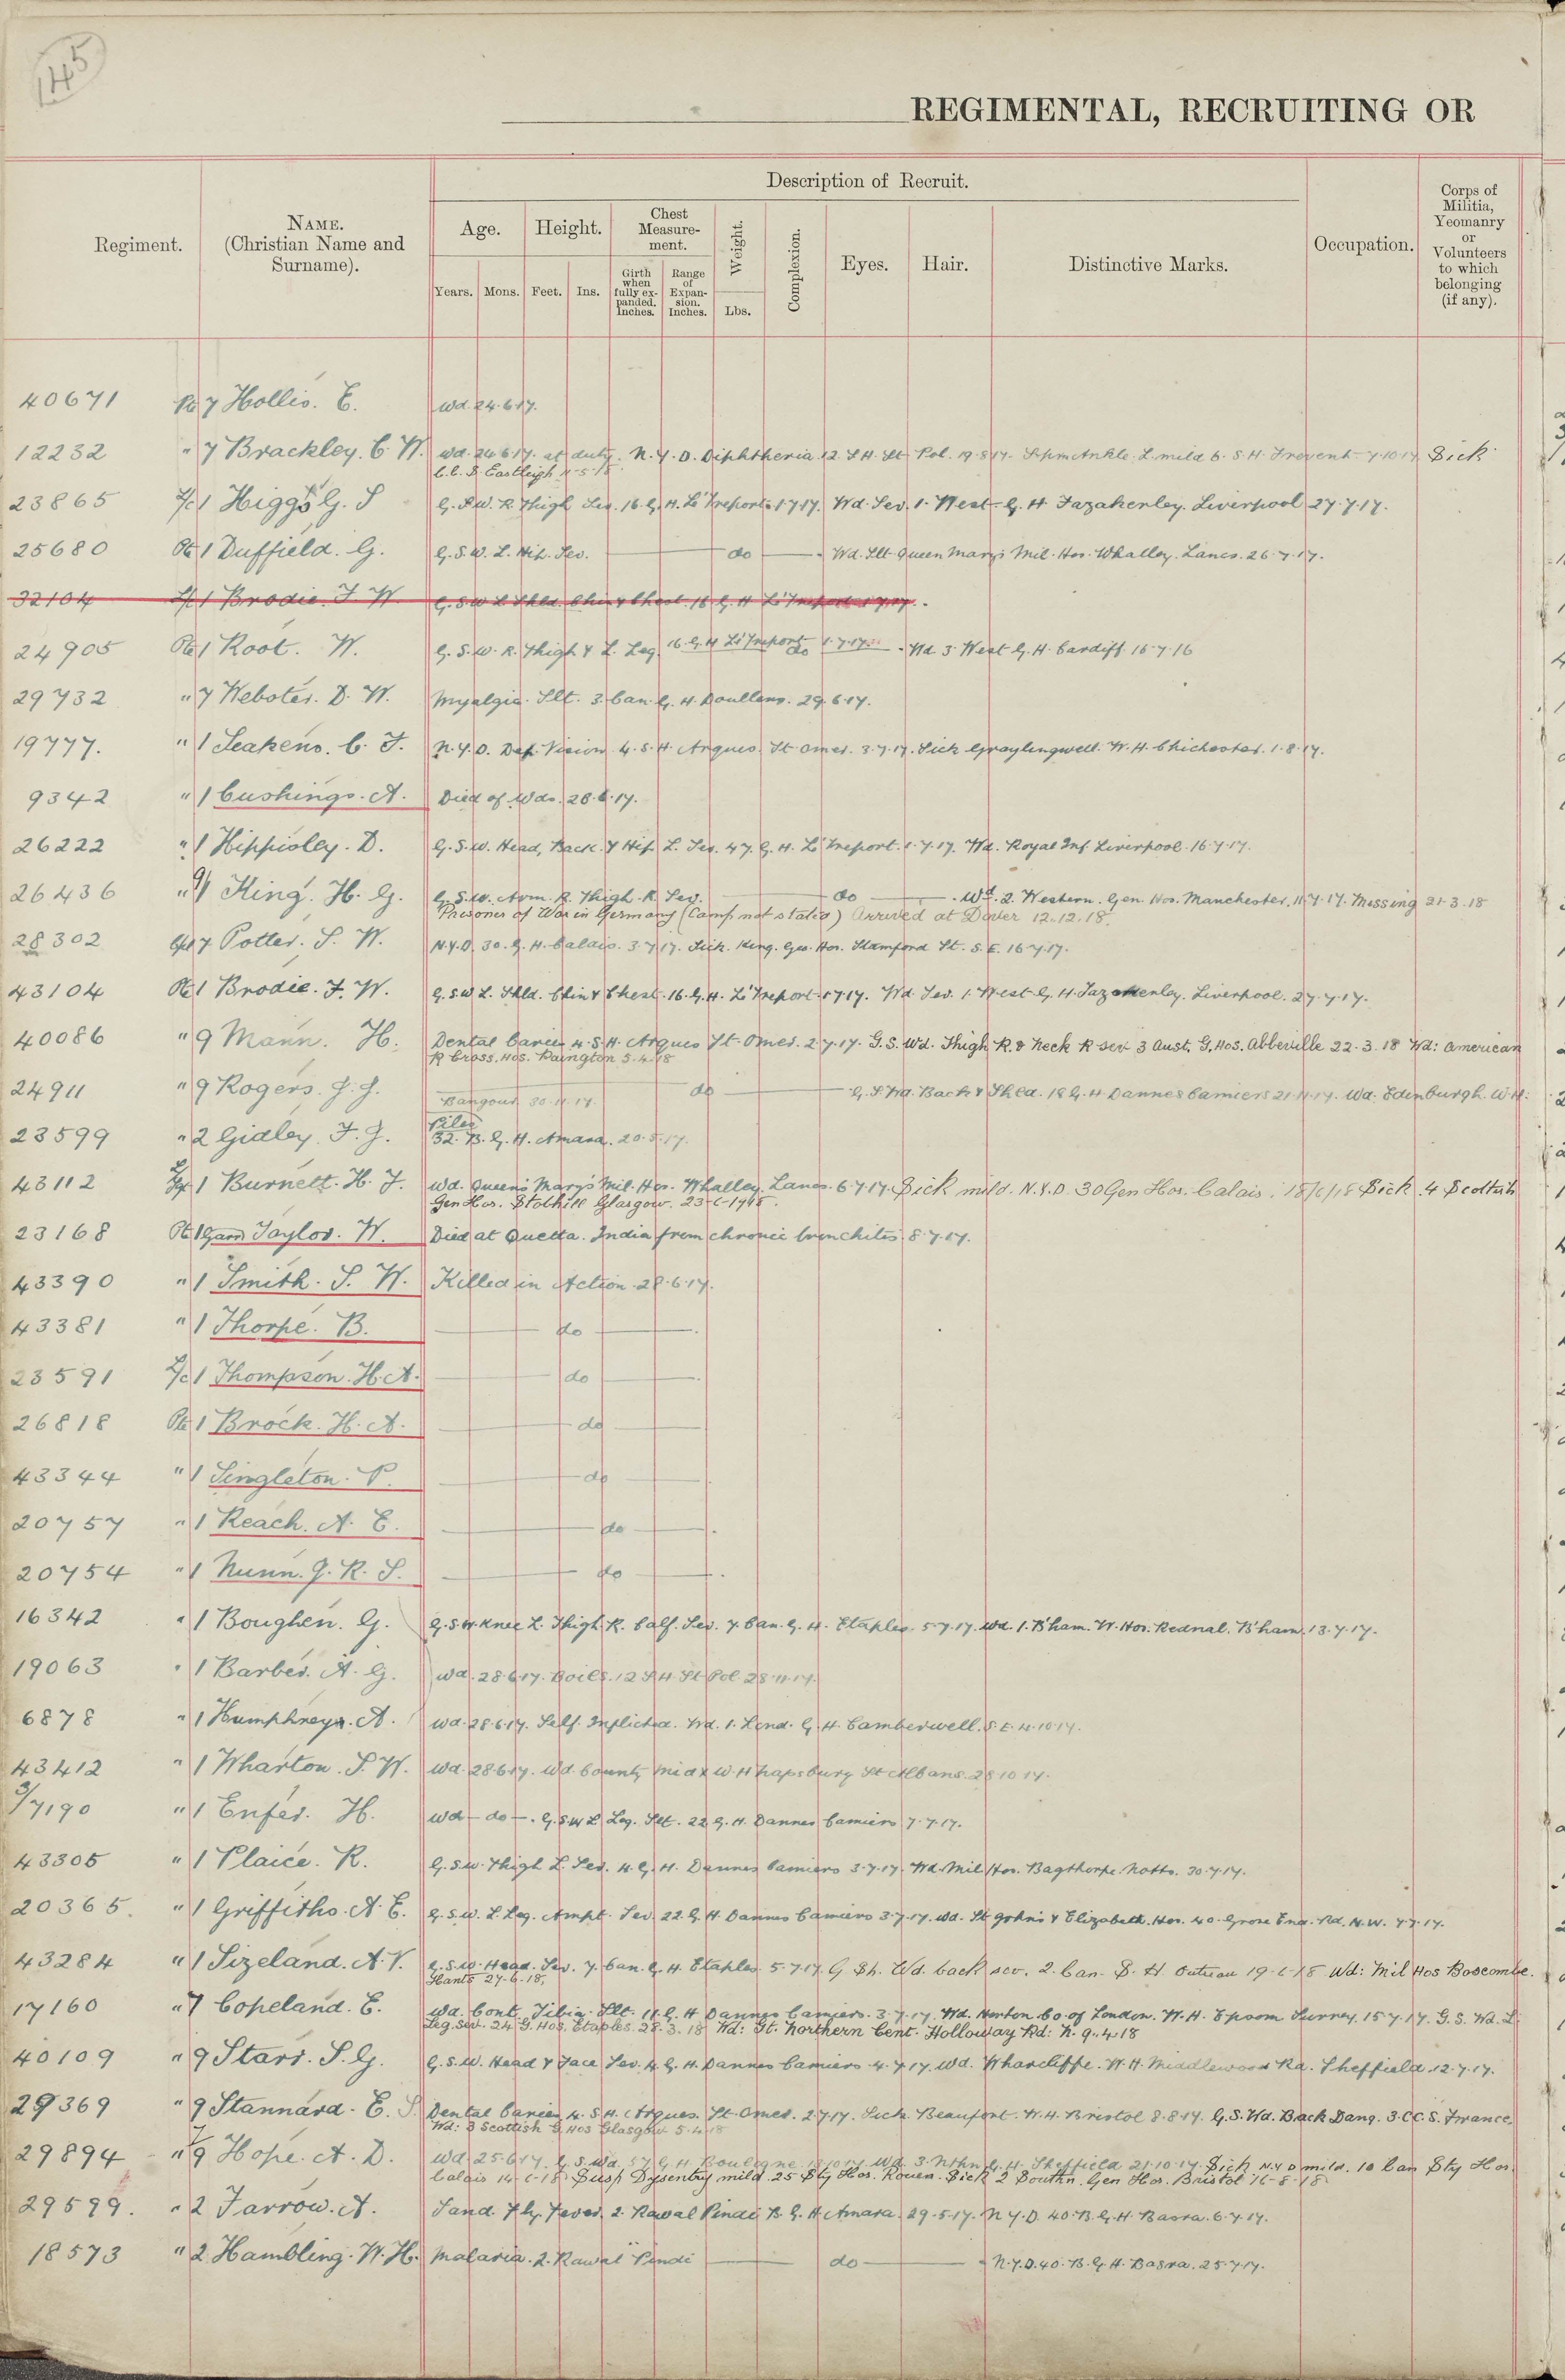 145
REGIMENTAL, RECRUITING OR
Description of Recruit.
Regiment.
NAME.
(Christian Name and
Surname).
Age.
Height.
Chest
Measure-
ment.
Weight.
Complexion.
Eyes.
Hair.
Distinctive Marks.
Occupation.
Corps of
Militia,
Yeomanry
or
Volunteers
to which
belonging
(if any).
Years.
Mons.
Feet.
Ins.
Girth
when
fully ex-
panded.
Inches.
Range
of
Expan-
sion.
Inches.
Lbs.
40671 Pte 7 Hollis. E. Wd. 24.6.17.
12232 " 7 Brackley. C. W. Wd. 24.6.17. at duty. N.Y.D. Diphtheria 12. S.H. St Pol. 19.8.17. Ankle. L. mild 6. S.H. Treport 7.10.17 Sick
C.C.D. Eastleigh 11-5-18
23865 L/c 1 Higgs G. S G.S.W. R. Thigh Sev. 16. G.H. Le Treport. 1.7.17. Wd. Sev. 1. West. G.H Fazakerley. Liverpool 27.7.17.
25680 Pte 1 Duffield. G. G.S.W. L. Hip. Sev. do Wd. Slt Queen Mary's Mil. Hos. Whalley. Lancs. 26.7.17.
32104 L/c 1 Brodie. F W. G.S.W L Shld. Chin & Chest. 16 G.H Le Treport 1.7.17.
24905 Pte 1 Root. W. G.S.W. R. Thigh & L. Leg. 16. G.H Le Treport 1.7.17 do Wd. 3. West G.H. Cardiff 16.7.16
29732 " 7 Webster. D. W. Myalgia. Slt. 3. Can. G.H. Doullens. 29.6.17.
19777. " 1 Seakens. C. F. N.Y.D. Def. Vision 4. S.H. Arques. St Omer. 3.7.17. Sick Graylingwell. W.H. Chichester. 1.8.17.
9342 " 1 Cushings. A. Died of Wds. 28.6.17.
26222 " 1 Hippisley. D. G.S.W. Head, Back & Hip L. Sev. 47. G.H. Le Treport. 1.7.17. Wd. Royal Inf Liverpool. 16.7.17.
26436 " 9/1 King. H. G. G.S.W. Arm. R. Thigh. R. Sev. do Wd. 2. Western. Gen. Hos. Manchester. 11.7.17. Missing 21.3.18
Prisoner of War in Germany (Camp not stated) Arrived at Dover 12.12.18.
28302 Cpl 7 Potter. S. W. N.Y.D. 30. G.H. Calais. 3.7.17. Sick. King. Geo. Hos. Stamford St. S.E. 16.7.17.
43104 Pte 1 Brodie. F. W. G.S.W L. Shld. Chin & Chest. 16. G.H. Le Treport 1.7.17. Wd Sev. 1. West. G.H. Fazakerley. Liverpool. 27.7.17.
40086 " 9 Mann. H. Dental Caries 4. S.H. Arques St. Omer. 2.7.17. G.S. Wd. Thigh R. & neck R sev 3 Aust. G. Hos. Abbeville 22.3.18 Wd: American
R Cross. Hos. Paington 5.4.18
24911 " 9 Rogers. J. J. do G.S. Wd. Back & Shld. 18 G.H Dannes Camiers 21.11.17. Wd. Edinburgh. W.H.
Bangour 30.11.17.
23599 " 2 Gidley. F. J. Piles
32. B. G.H. Amara. 20.5.17.
43112 L/Cpl 1 Burnett. H. F. Wd. Queen's Mary's Mil. Hos. Whalley. Lancs. 6.7.17. Sick mild. N.Y.D. 30 Gen Hos. Calais. 18/6/18 Sick. 4 Scottish
Gen Hos. Stobhill Glasgow. 23-6-1918.
23168 Pte 1 Garr Taylor. W. Died at Quetta. India from chronic bronchitis. 8.7.17.
43390 " 1 Smith. S. W. Killed in Action. 28.6.17.
43381 " 1 Thorpe. B. do
23591 L/c 1 Thompson. H. A. do
26818 Pte 1 Brock. H. A. do
43344 " 1 Singleton. P. do
20757 " 1 Reach. A. E. do
20754 " 1 Nunn. J. R. S. do
16342 " 1 Boughen. G. G.S.W. Knee L. Thigh R. Calf. Sev. 7. Can. G.H. Etaples. 5.7.17. Wd. 1. B'ham. W. Hos. Rednal. B'ham. 13.7.17.
19063 " 1 Barber. A. G. Wd. 28.6.17. Boils. 12 S.H. St Pol. 28.11.17.
6878 " 1 Humphreys. A. Wd. 28.6.17. Self. Inflicted. Wd. 1. Lond. G.H. Camberwell. S.E. 4.10.17.
43412 " 1 Wharton. S. W. Wd. 28.6.17. Wd. County Midx W.H Napsbury St Albans. 28.10.17.
3/7190 " 1 Enfer. H. Wd - do -. G.S.W L Leg. Slt. 22. G.H. Dannes Camiers 7.7.17.
43305 " 1 Plaice. R. G.S.W. Thigh L. Sev. 4. G.H. Dannes Camiers 3.7.17. Wd. Mil Hos. Bagthorpe. Notts. 30.7.17.
20365. " 1 Griffiths. A. E. G.S.W. L. Leg. Ampt. Sev. 22. G.H Dannes Camiers 3.7.17. Wd. St John's & Elizabeth. Hos. 40. Grove End. Rd. N.W. 7.7.17.
43284 " 1 Sizeland. A. V. G.S.W. Head. Sev. 7. Can. G.H. Etaples. 5.7.17. G Sh. Wd. back sev. 2. Can. S. H. Outreau 19.6.18 Wd: Mil Hos Boscombe.
Hants 27.6.18.
17160 " 7 Copeland. E. Wd. Cont. Tibia. Slt. 11. G.H Dannes Camiers. 3.7.17. Wd. Horton. Co. of London. W.H. Epsom Surrey. 15.7.17. G.S. Wd. L.
Leg. Sev. 24 G. Hos. Etaples. 28.3.18 Wd: Gt. Northern Cent. Holloway Rd: N. 9.4.18
40109 " 9 Starr. S. G. G.S.W. Head & Face Sev. 4. G.H. Dannes Camiers 4.7.17. Wd. Wharcliffe. W.H. Middlewood Rd. Sheffield. 12.7.17.
29369 " 9 Stannard. E. S Dental Caries. 4. S.H. Arques. St Omer. 2.7.17. Sick Beaufort. W.H. Bristol 8.8.17. G.S. Wd. Back Dang. 3. C.C.S. France.
Wd: 3 Scottish G. Hos Glasgow 5.4.18
29894 " 7/9 Hope. A. D. Wd 25.6.17. G.S. Wd. 57 G.H Boulogne 18.10.17 Wd. 3. Nthn G.H. Sheffield 21.10.17. Sick N.Y.D mild. 10 Can Sty Hos.
Calais 14-6-18 Susp Dysentry mild. 25 Sty Hos. Rouen. Sick 2 Southn. Gen Hos. Bristol 16-8-18
29599. " 2 Farrow. A. Sand Fly. Fever. 2. Rawal Pindi B. G.H Amara. 29.5.17. N.Y.D. 40. B. G.H. Basra. 6.7.17.
18573 " 2 Hambling. W. H. Malaria. 2. Rawal Pindi do N.Y.D. 40. B. G.H. Basra. 25.7.17.